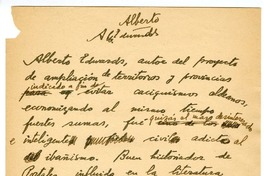 Alberto
Alberto Edwards, autor del proyecto
de ampliación de territorios y provincias
indicado a fin de
evitar caciquismos aldeanos,
economizando al mismo tiempo
fuertes sumas, fué quizás el mayor
e inteligente civil adicto al
ibañismo. Buen historiador de
Portales influido en la literatura